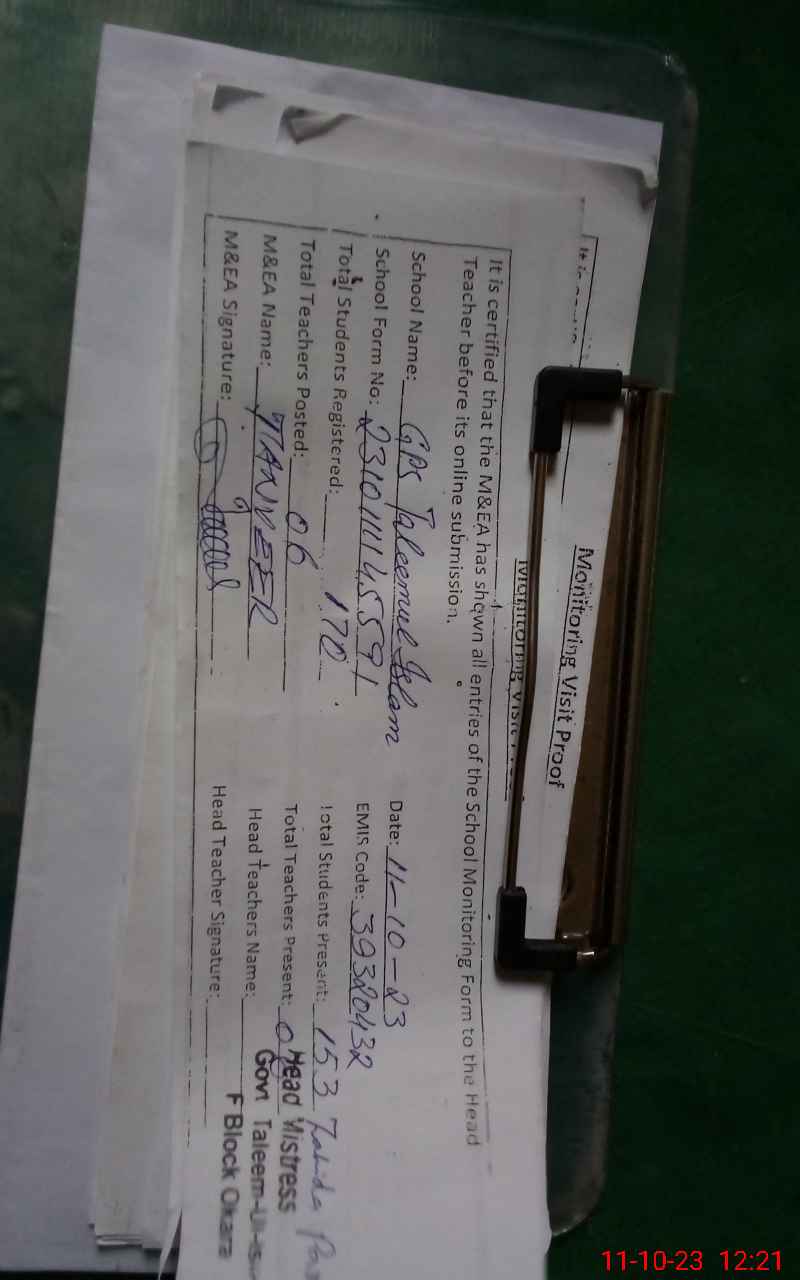 Monitoring Visit Proof
It is certified that the M&EA has shown all entries of the School Monitoring Form to the Head
Teacher before its online submission.
School Name: GPS Taleemul Islam Date: 11-10-23
School Form No: EMIS Code: 39320432
Total Students Registered: 170 Total Students Present: 153
Total Teachers Posted: 06 Total Teachers Present:
M&EA Name: TANVEER Head Teachers Name:
M&EA Signature: Head Teacher Signature:
Head Mistress
Govt Taleem-Ul-Is
F Block Okara
11-10-23 12:21